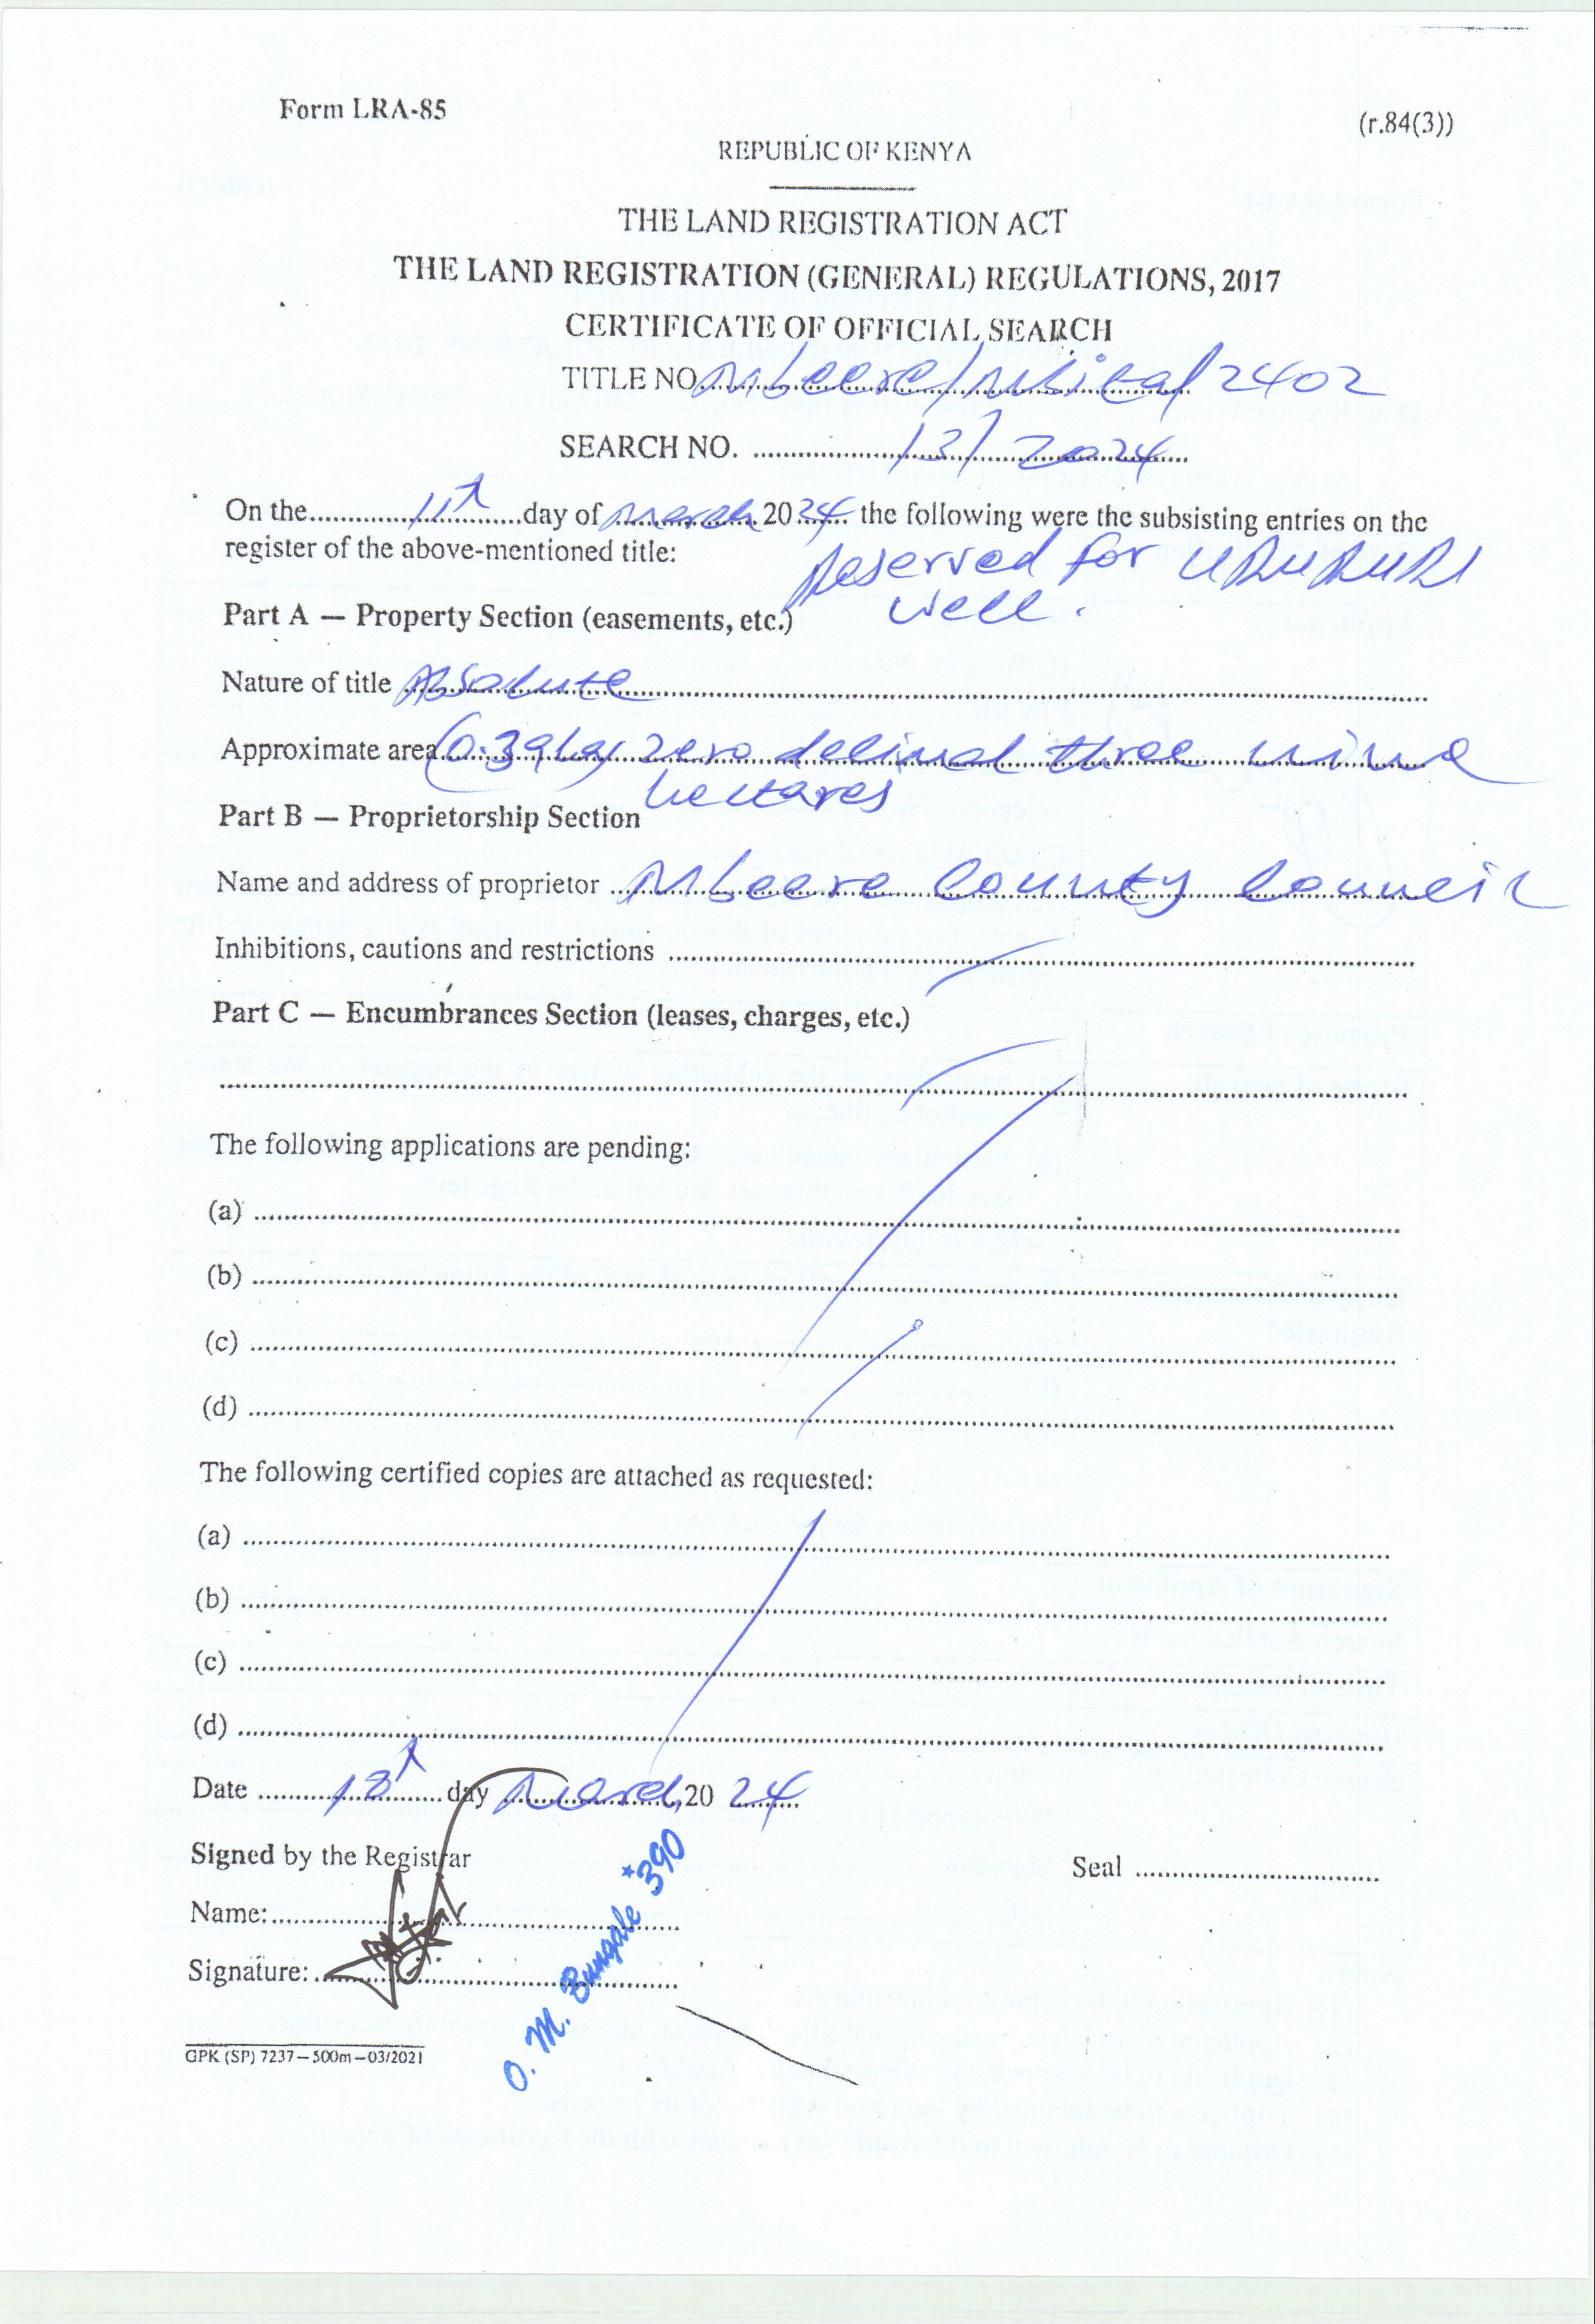 Form LRA-85
(r.84(3))
REPUBLIC OF KENYA
THE LAND REGISTRATION ACT
THE LAND REGISTRATION (GENERAL) REGULATIONS, 2017
CERTIFICATE OF OFFICIAL SEARCH
TITLE NO. Mbeere/Mbita/ 2402
SEARCH NO. 13/2024
On the 11th day of March 2024 the following were the subsisting entries on the
register of the above-mentioned title:
Reserved for URURURI
Part A — Property Section (easements, etc.) well.
Nature of title Absolute
Approximate area (0.39ha) zero decimal three nine
hectares
Part B — Proprietorship Section
Name and address of proprietor Mbeere County Council
Inhibitions, cautions and restrictions
Part C — Encumbrances Section (leases, charges, etc.)
The following applications are pending:
(a)
(b)
(c)
(d)
The following certified copies are attached as requested:
(a)
(b)
(c)
(d)
Date 18th day March, 20 24
Signed by the Registrar
Seal
Name:
Signature:
O. M. Bungale *390
GPK (SP) 7237—500m—03/2021